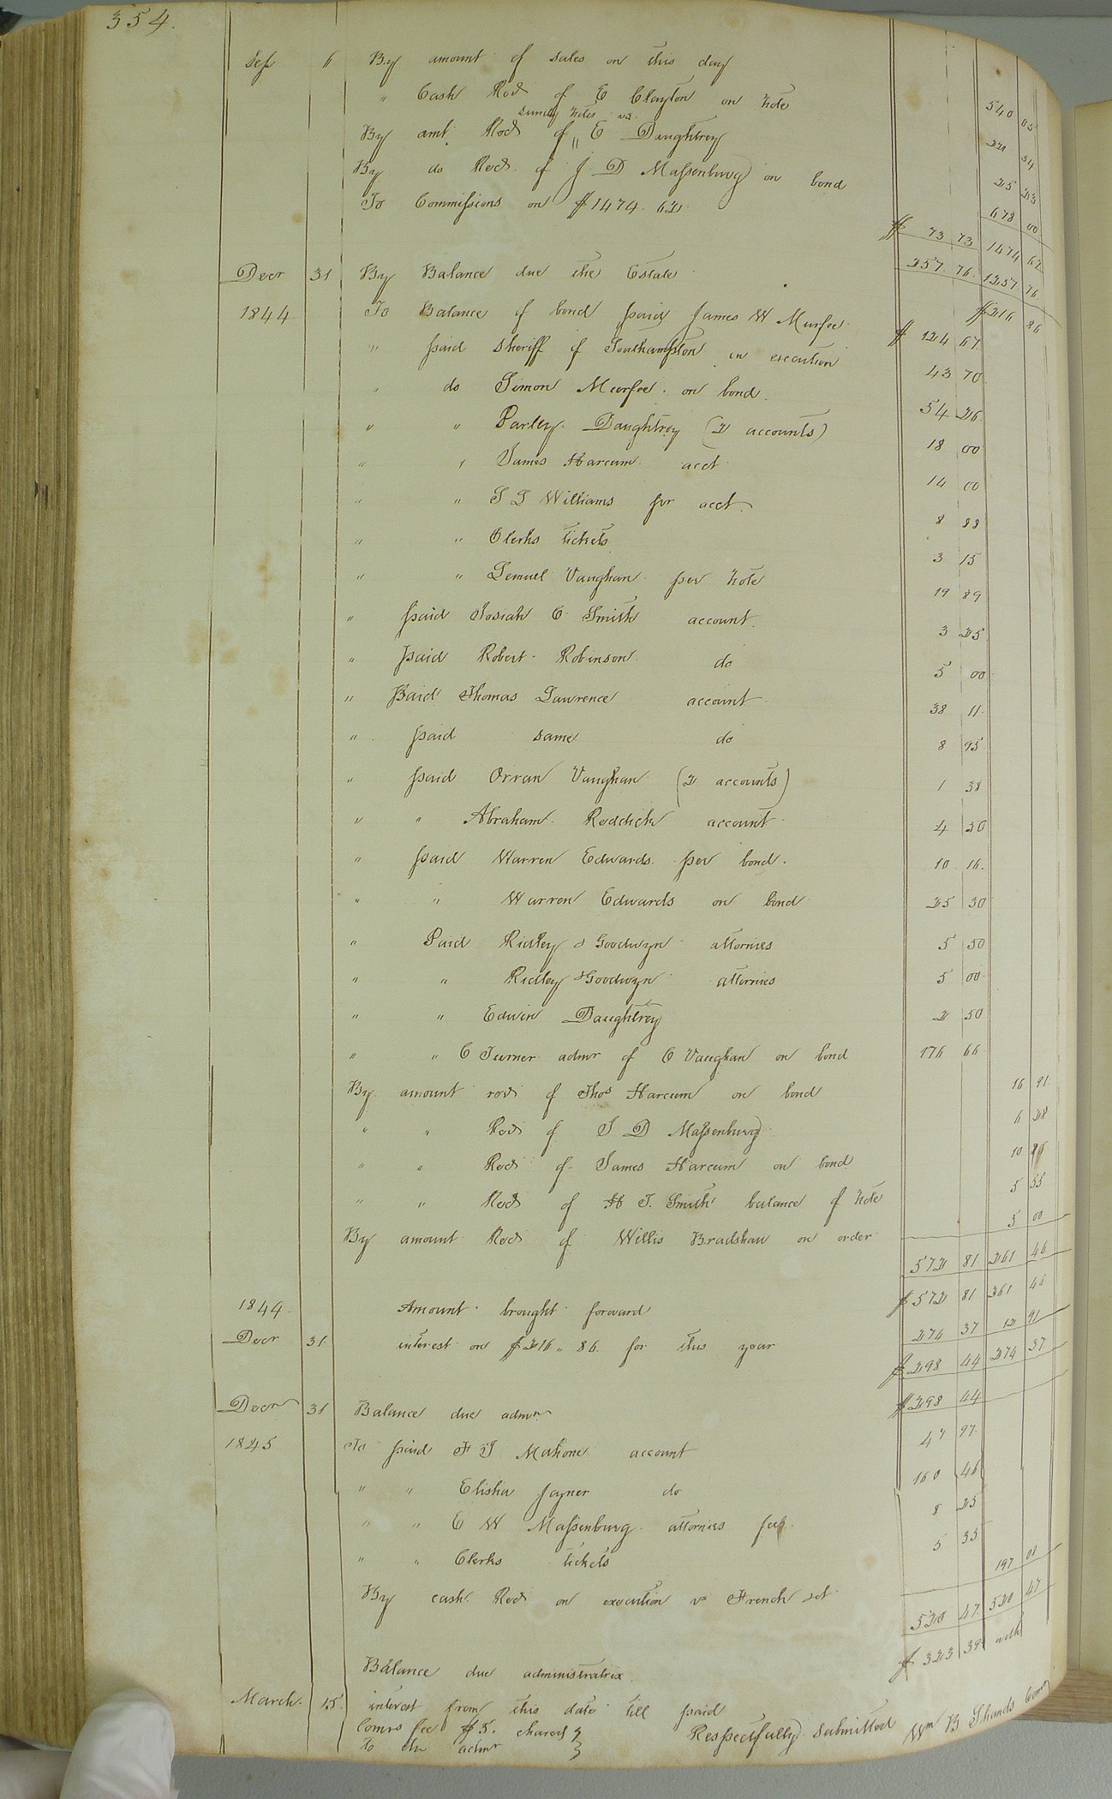 354.
Sep 6 By amount of sales on this day 540 05
" Cash Recd of E Clayton on note 221 34
sundry notes vs
By amt. Recd of " E Daughtrey 25 23
By do Recd of J D Massenburg on bond 678 00
To Commissions on $1474.62 $ 73 73 1474 62
257 76 1257 76
Decr 31 By Balance due the Estate $216 86
1844 To Balance of bond paid James W Murfee $ 124 67
" paid Sheriff of Southampton in execution 43 70
" do Simon Murfee on bond 54 26
" " Parley Daughtrey (2 accounts) 18 00
" " James Harcum acct 14 00
" " S J Williams per acct 8 88
" " Clerks tickets 3 15
" " Lemuel Vaughan per note 19 89
" paid Josiah C Smith account 3 25
" paid Robert Robinson do 5 00
" Paid Thomas Lawrence account 38 11
" paid same do 8 95
" paid Orran Vaughan (2 accounts) 1 38
" " Abraham Reddick account 4 50
" paid Warren Edwards per bond 10 16
" " Warren Edwards on bond 25 30
" Paid Ridley & Goodwyn attornies 5 50
" " Ridley & Goodwyn attornies 5 00
" " Edwin Daughtrey 2 50
" " C Turner admr of C Vaughan on bond 176 66
By amount recd of Thos Harcum on bond 16 91
" " Recd of J D Massenburg 6 28
" " Recd of James Harcum on bond 10
" " Recd of H J. Smith balance of note 5 55
By amount Recd of Willis Bradshaw on order 5 00
572 81 261 46
1844 Amount brought forward $572 81 261 46
Decr 31 interest on $216.86 for this year 274 37 12 91
$298 44 274 37
Decr 31 Balance due admr $298 44
1845 To paid H J Mahone account 47 97
" " Elisha Joyner do 160 46
" " C W Massenburg attornies fee 8 25
" " Clerks tickets 5 35
By cash Recd on execution vs French set 197 08
520 47 520 47
Balance due administratrix $ 323 39 with
March 15 interest from this date till paid
Comrs fee $5. charged }
to the admr }
Respectfully submitted Wm B Shands Comr